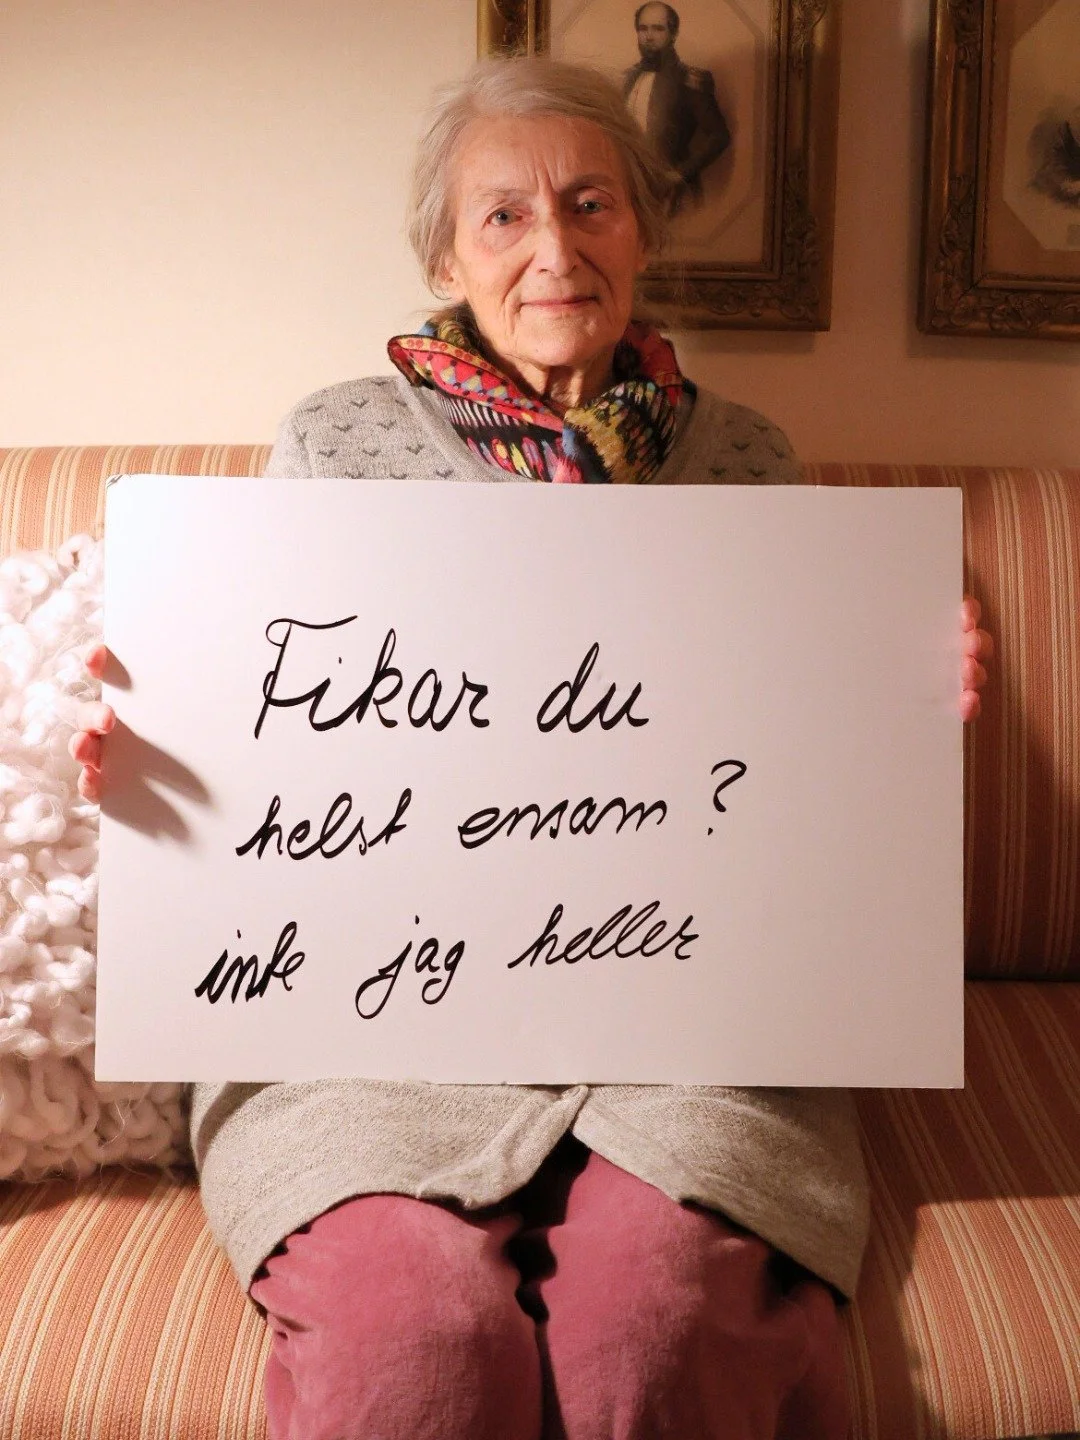 Fikar du
helst ensam?
inte jag heller